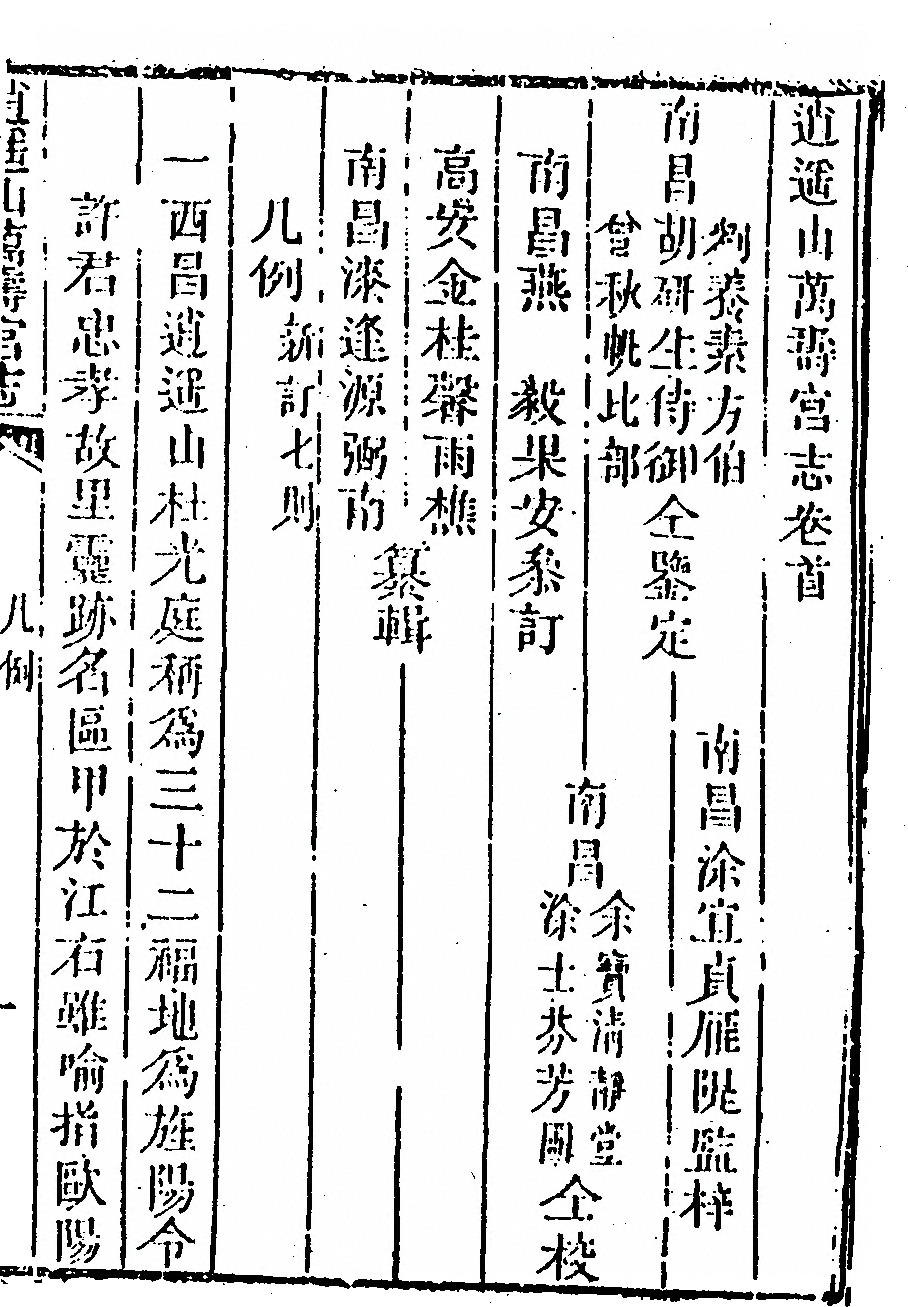 逍遥山萬壽宮志卷首
劉養素方伯
南昌胡硏生侍御仝鑒定
曾秋帆比部
南昌涂宜貞雁陛監梓
南昌燕　毅果安叅訂
南昌余寶清靜堂
涂士芬芳圃仝校
高安金桂馨雨樵
南昌漆逢源弼南
纂輯
凡例新訂七則
一西昌逍遥山杜光庭稱為三十二福地為旌陽令
許君忠孝故里靈跡名區甲於江右雖喻指歐陽
逍遥山萬壽宮志
凡例
一